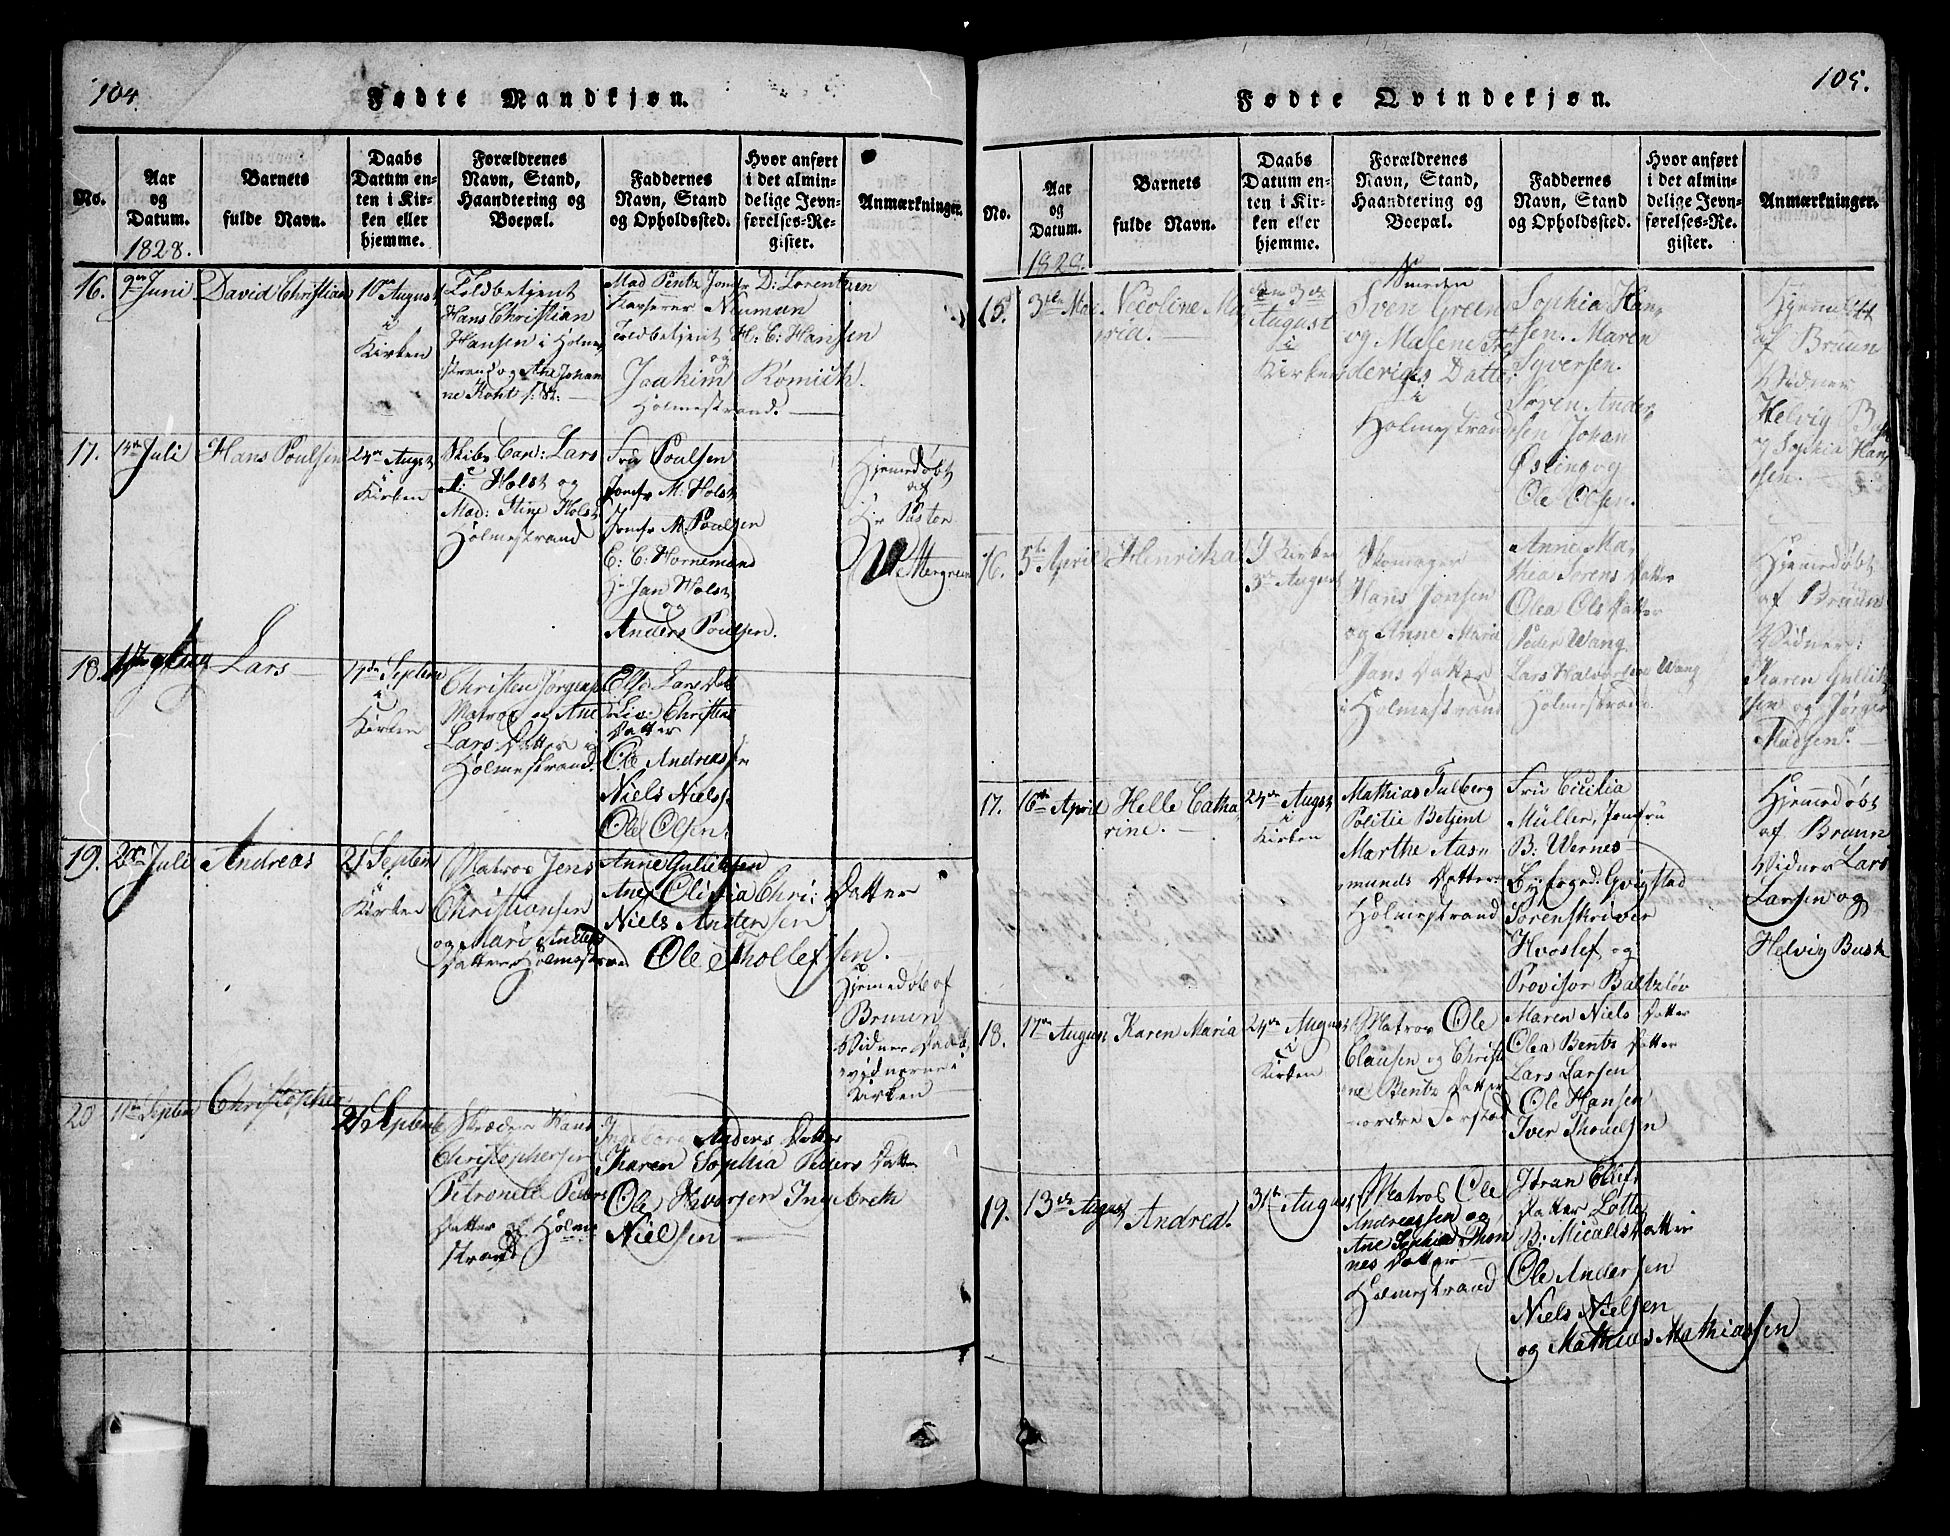 104.
Fødte Mandkjøn.
No.
Aar
og
Datum.
1828.
Barnets
fulde Navn.
Daabs
Datum en-
ten i Kir-
ken eller
hjemme.
Forældrenes
Navn, Stand,
Haandtering og
Boepæl.
Faddernes
Navn, Stand
og Opholdssted.
Hvor anført
i det almin-
delige Jevn-
førelses-Re-
gister.
Anmærkninger.
16.
Juni
David Christian
10de August
i
Kirken
Toldbetjent
Hans Christian
Hansen i Holme
strand og Ane Johan
ne
Mad Pentz Jomfr D: Lorentzen
Neuman
Toldbetjent H: C: Hansen
og
Joakim Römich.
Holmestrand.
17.
Juli
Hans Poulsen
24de August
i
Kirken
Skibs Cap: Lars
Holst og
Mad: Stine Holst
Holmestrand
Frü Poulsen
Jomfr M: Holst
Jomfr M: Poulsen
C: C: Hornemand
Hr Jan Holst
og
Anders Poulsen.
Hjemedöbt
af
Hr Pastor
18.
Aug
Lars
14de Septem
i
Kirken
Christen Jörgens
Matros og Ane
Lars Datter i
Holmestrand.
Else Lars Datt
Live Christens
Datter
Ole Andreas
Niels Niels
Ole Olsen.
19.
Juli
Andreas
21 Septem
i
Kirken
Matros Jens
Christiansen
og Mari Anders
Datter Holmestrand
Anne
Ane Datter
Niels Andersen
Ole Thollefsen.
Hjemedöbt af
Bruun
Vidner
i
Kirken
20
11te Septem
Christopher
21 Septemb
Skræder Hans
Christophersen
Petronele Peders
Datter af Holme
strand
Ingeborg Anders Datter
Karen Sophia Peders Datter
Ole Havorsen
Nielsen
105.
Fødte Qvindekjøn.
No.
Aar
og
Datum.
1828.
Barnets
fulde Navn.
Daabs
Datum en-
ten i Kir-
ken eller
hjemme.
Forældrenes
Navn, Stand,
Haandtering og
Boepæl.
Faddernes
Navn, Stand
og Opholdssted.
Hvor anført
i det almin-
delige Jevn-
førelses-Re-
gister.
Anmærkninger.
15.
3die Mai
Nicoline Ma
ria.
den 3de
August
i
Kirken
Smeden
Sven Green
og Malene Fre
derichs Datter
i
Holmestrand
Sophia Han
sen. Maren
Syversen.
Sören Ander
sen Johan
Ösling og
Ole Olsen.
Hjemdöbt
af Bruun
Vidner
Helvig Busk
og Sophia Han
sen.
16.
5te April
Henrika
I Kirken
3de August
Skomager
Hans Jonsen
og Anne Maria
Jans Datter
i Holmestrand
Anne Ma
thea Sörens Datter
Olea Ols Datter
Peder Wang
Lars Halvorsen Wang
Holmestrand.
Hjemedöbt
af Bruun
Vidner:
Karen Gullik
sen og Jörgen
Madsen.
17.
16de April
Helle Catha
rine.
24de August
i
Kirken
Mathias Tulberg
Politie Betjent
Marthe Aas
munds Datter
Holmestrand
Frü Cicilia
Müller, Jomfrü
B: Wernes
Byfoged: Gvigstad
Sorenskriver
Hvoslef og
Provisor Baltzlöv
Hjemedöbt
af Bruun
Vidner Lars
Larsen og
Helvig Busk
18.
17de August
Karen Maria
24de August
i
Kirken
Matros Ole
Clausen og Christi
ane Bentz Datter
Maren Niels Datter
Olea Bentz Datter
Lars Larsen
Ole Hansen
Iver Thomesen
19.
13de August
Andrea.
31te August
Matros Ole
Andreassen og
Ane Sophia Thon
nes Datter
Holmestrand
Datter Lotte
B: Micaels Datter
Ole Andersen
Niels Nielsen
og Mathias Mathiassen